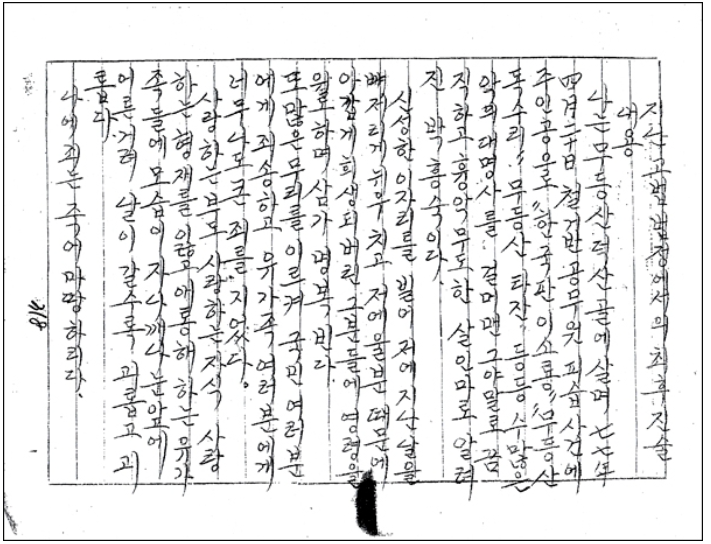 지난 공법 법정에서의 최후진술
내용
나는 무등산 덕산골에 살며 七七年
四月二十日 철거반 공무원 피습 사건에
주인공으로 "한국판 이소룡" "무등산
독수리" "무등산 타잔" 등등 수많은
악의 대명사를 걸머맨 그야말로 끔
직하고 흉악무도한 살인마로 알려
진 박흥숙이다.
신성한 이자리를 빌어 저에 지난날을
뼈저리게 뉘우치고 저에 울분 때문에
아깝게 희생되버린 그분들에 영령을
위로하며 삼가 명복 빈다.
또 많은 무리를 이르켜 국민 여러분
에게 죄송하고 유가족 여러분에게
너무나도 큰 죄를 지었다.
사랑하는 부모 사랑하는 자식 사랑
하는 형재를 잃고 애통해 하는 유가
족들에 모습이 자나깨나 눈앞에
어른거려 날이 갈수록 괴롭고 괴
롭다.
나에 죄는 죽어 마땅하리다.